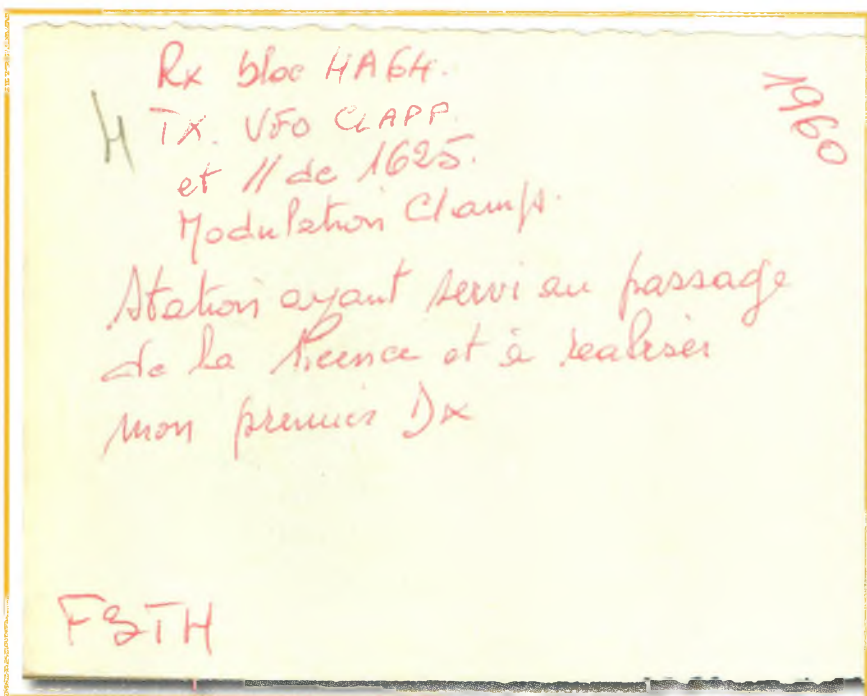 Rx bloc HA64.
1960
4 TX. VFO CLAPP.
et // de 1625.
Modulation Clamp.
Station ayant servi au passage
de la licence et à realiser
mon premier Dx